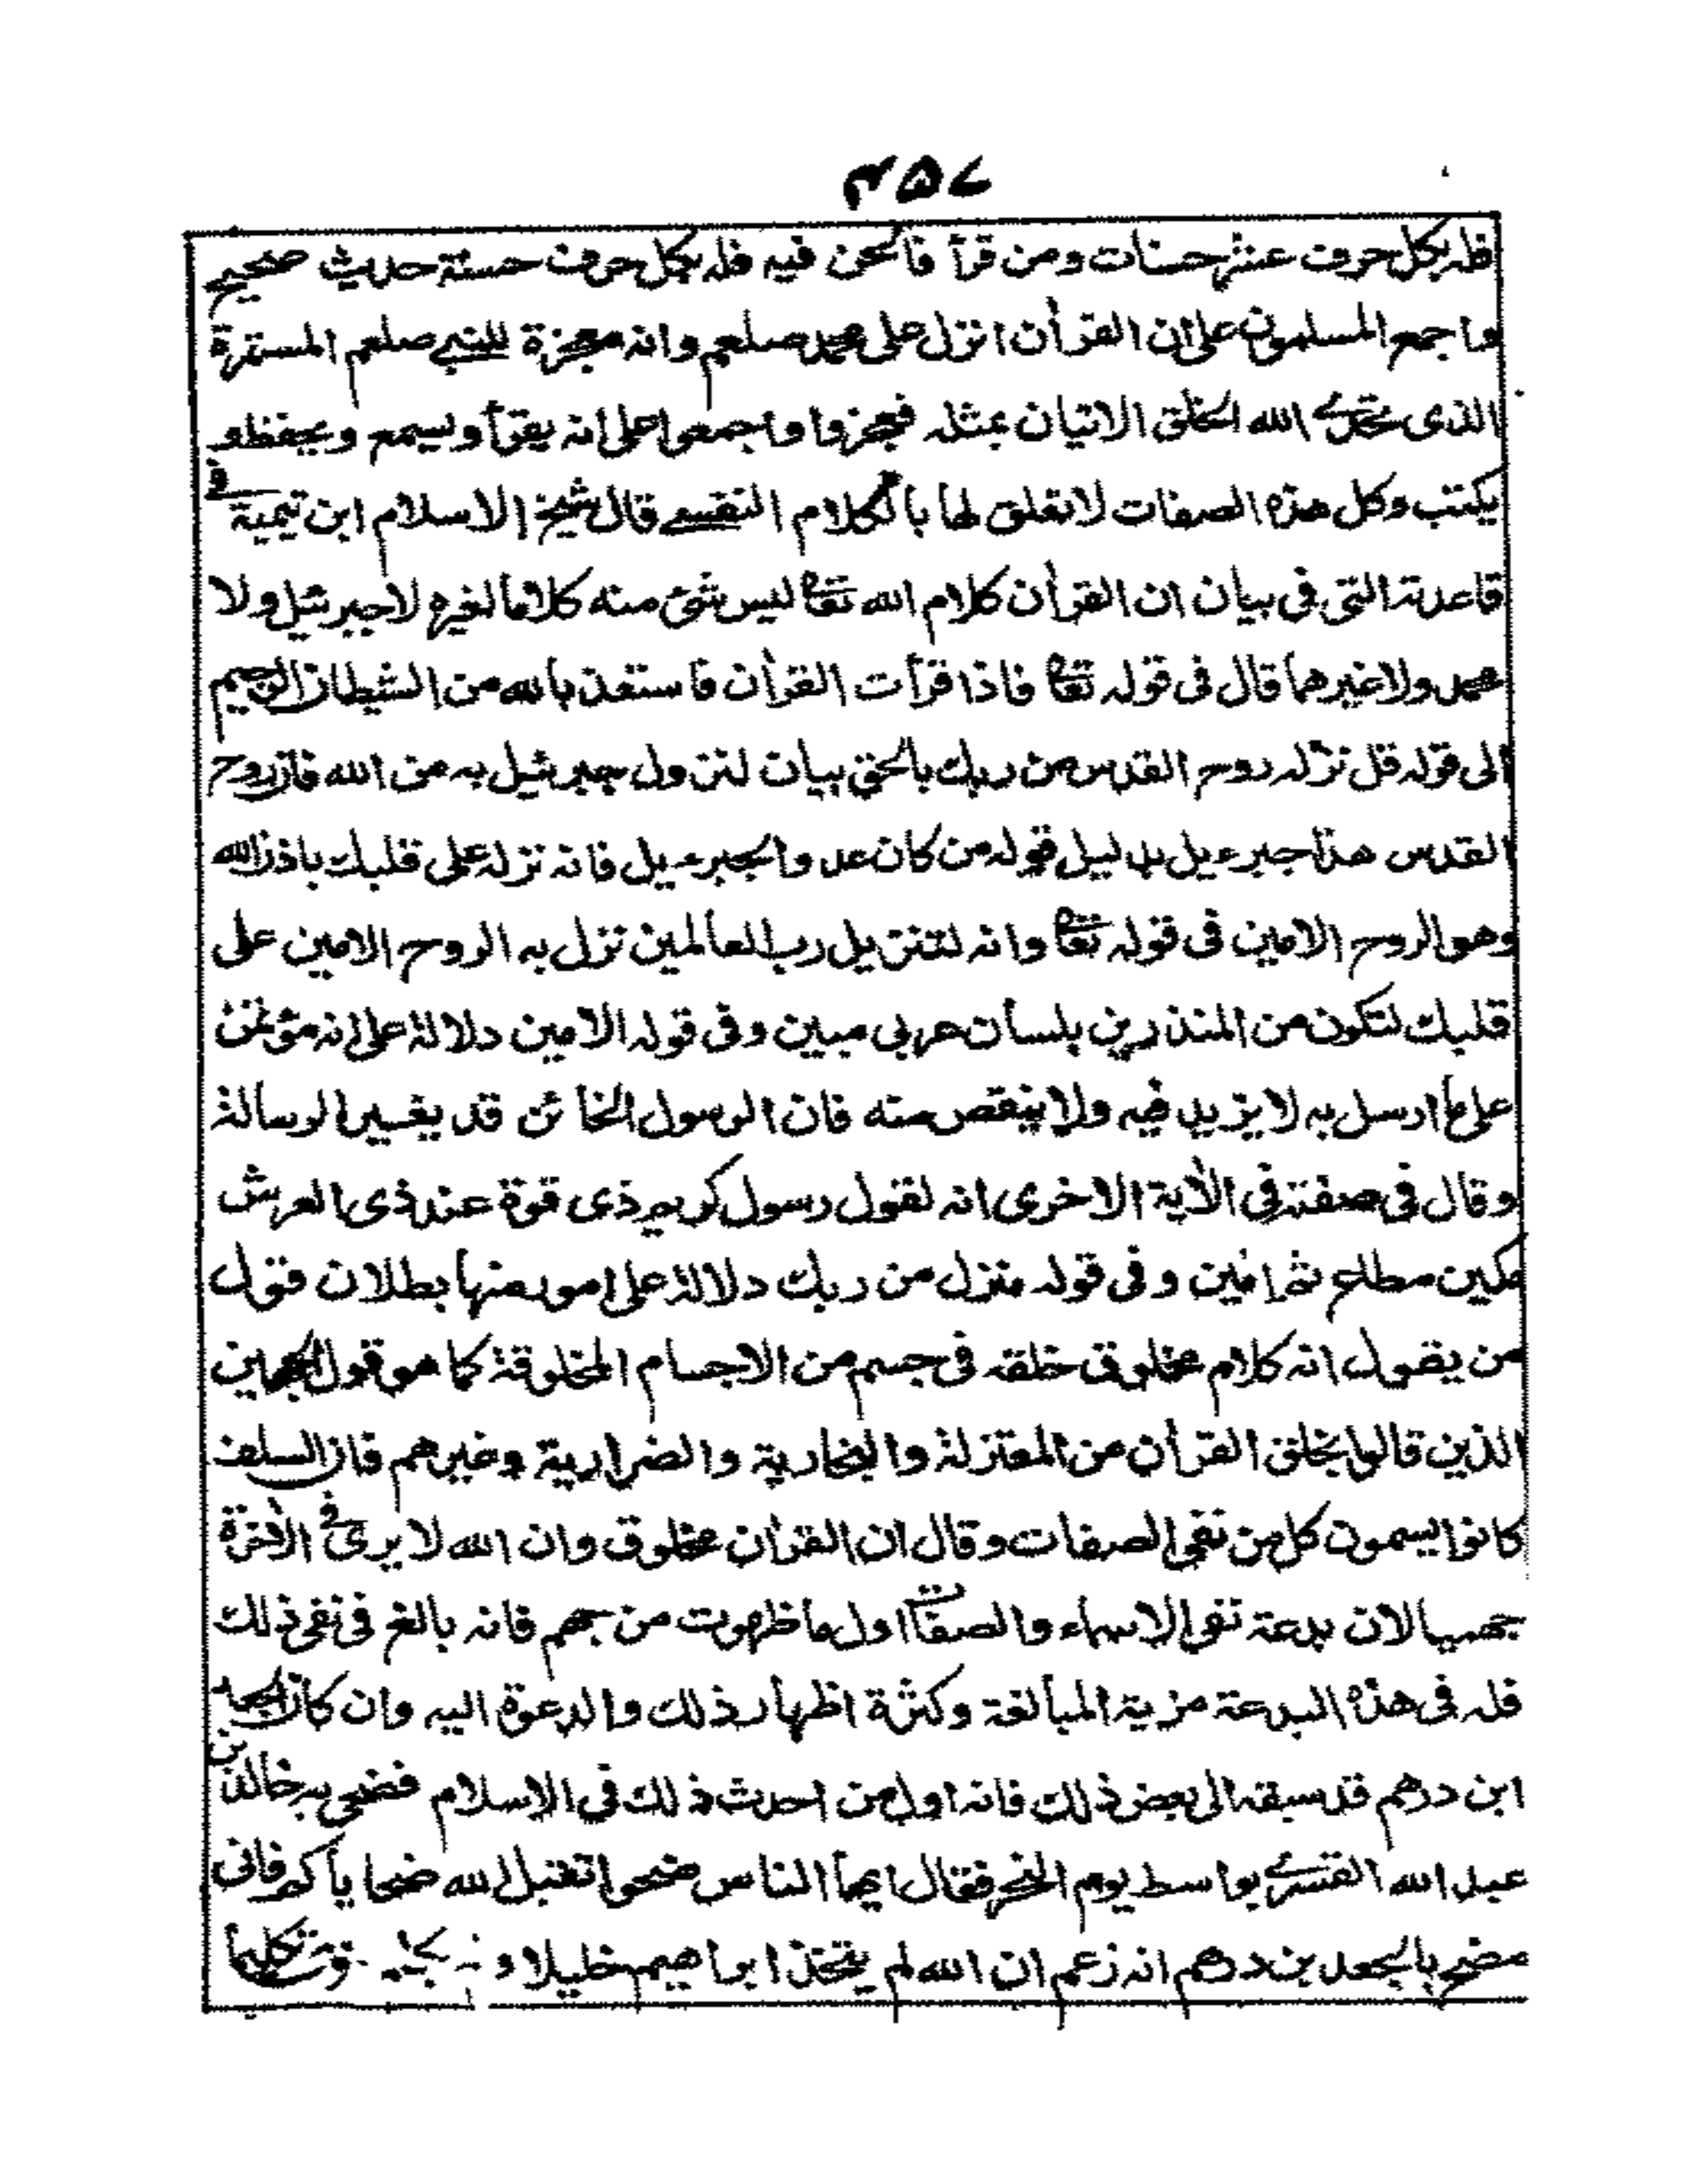 ۴۵۷
فله بكل حرف عشر حسنات ومن قرأ فالحن فيه فله بكل حرف حسنة حديث صحيح
واجمع المسلمون على ان القرأن انزل على محمد صلعم وانه معجزة للنبي صلعم المستمرة
الذى تحدى الله الخلق الاتيان بمثله فعجزوا واجمعوا على انه يقرأ ويسمع ويحفظ و
يكتب وكل هذه الصفات لا تعلق لها بالكلام النفسى قال شيخ الاسلام ابن تيمية فى
قاعدته التى فى بيان ان القرأن كلام الله تعا ليس شئ منه كلاما لغيره لا جبرئيل ولا
محمد ولا غيرهما قال فى قوله تعا فاذا قرأت القرأن فاستعذ بالله من الشيطان الرجيم
الى قوله قل نزله روح القدس من ربك بالحق بيان لنزول جبرئيل به من الله فان روح
القدس هذا جبرءيل بدليل قوله من كان عدوا لجبرءيل فانه نزله على قلبك باذن الله
وهو الروح الامين فى قوله تعا وانه لتنزيل رب العالمين نزل به الروح الامين على
قلبك لتكون من المنذرين بلسان عربى مبين وفى قوله الامين دلالة على انه مؤتمن
على ما ارسل به لا يزيد فيه ولا ينقص منه فان الرسول الخائن قد يغير الرسالة
وقال فى صفته فى الأية الاخرى انه لقول رسول كريم ذى قوة عند ذى العرش
مكين مطاع ثم امين وفى قوله منزل من ربك دلالة على امور منها بطلان قول
من يقول انه كلام مخلوق خلقه فى جسم من الاجسام المخلوقة كما هو قول الجهمين
الذين قالوا بخلق القرأن من المعتزلة والنجارية والضرارية وغيرهم فان السلف
كانوا يسمون كل من نفى الصفات وقال ان القرأن مخلوق وان الله لا يرى فى الأخرة
جهميا لان بدعة نفى الاسماء والصفات اول ما ظهرت من جهم فانه بالغ فى نفى ذلك
فله فى هذه البدعة مزية المبالغة وكثرة اظهار ذلك والدعوة اليه وان كان الجعد
ابن درهم قد سبقه الى بعض ذلك فانه اول من احدث ذلك فى الاسلام فضحى به خالد بن
عبد الله القسرى بواسط يوم النحر فقال ايها الناس ضحوا تقبل الله ضحاياكم فانى
مضح بالجعد بن درهم انه زعم ان الله لم يتخذ ابراهيم خليلا و تكليما